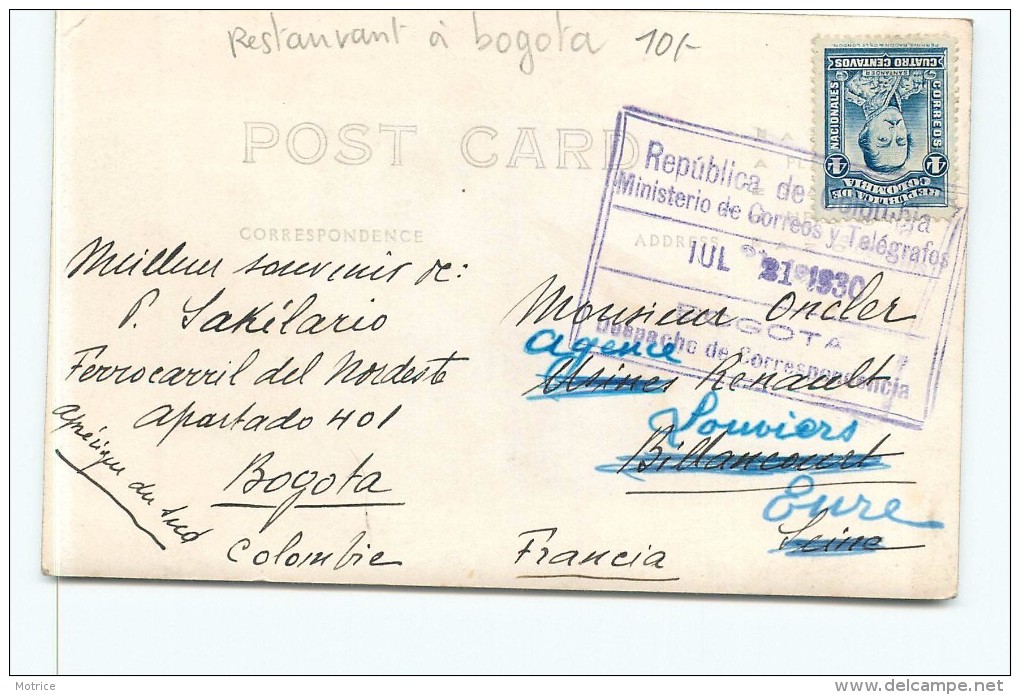 Restaurant à bogota 10/-
POST CARD
CORRESPONDENCE
ADDRESS
Meilleur souvenir de:
P. Sakélario
Ferrocarril del Nordeste
Apartado 401
Bogota
Colombie
Amérique du Sud
CORREOS NACIONALES
REPUBLICA DE COLOMBIA
4 4
SANTANDER
CUATRO CENTAVOS
República de Colombia
Ministerio de Correos y Telégrafos
JUL 21 1930
BOGOTA
Despacho de Correspondencia
Monsieur Oncler
Agence
Usines Renault
Louviers
Billancourt
Eure
Seine
Francia
Motrice
delcampe.net